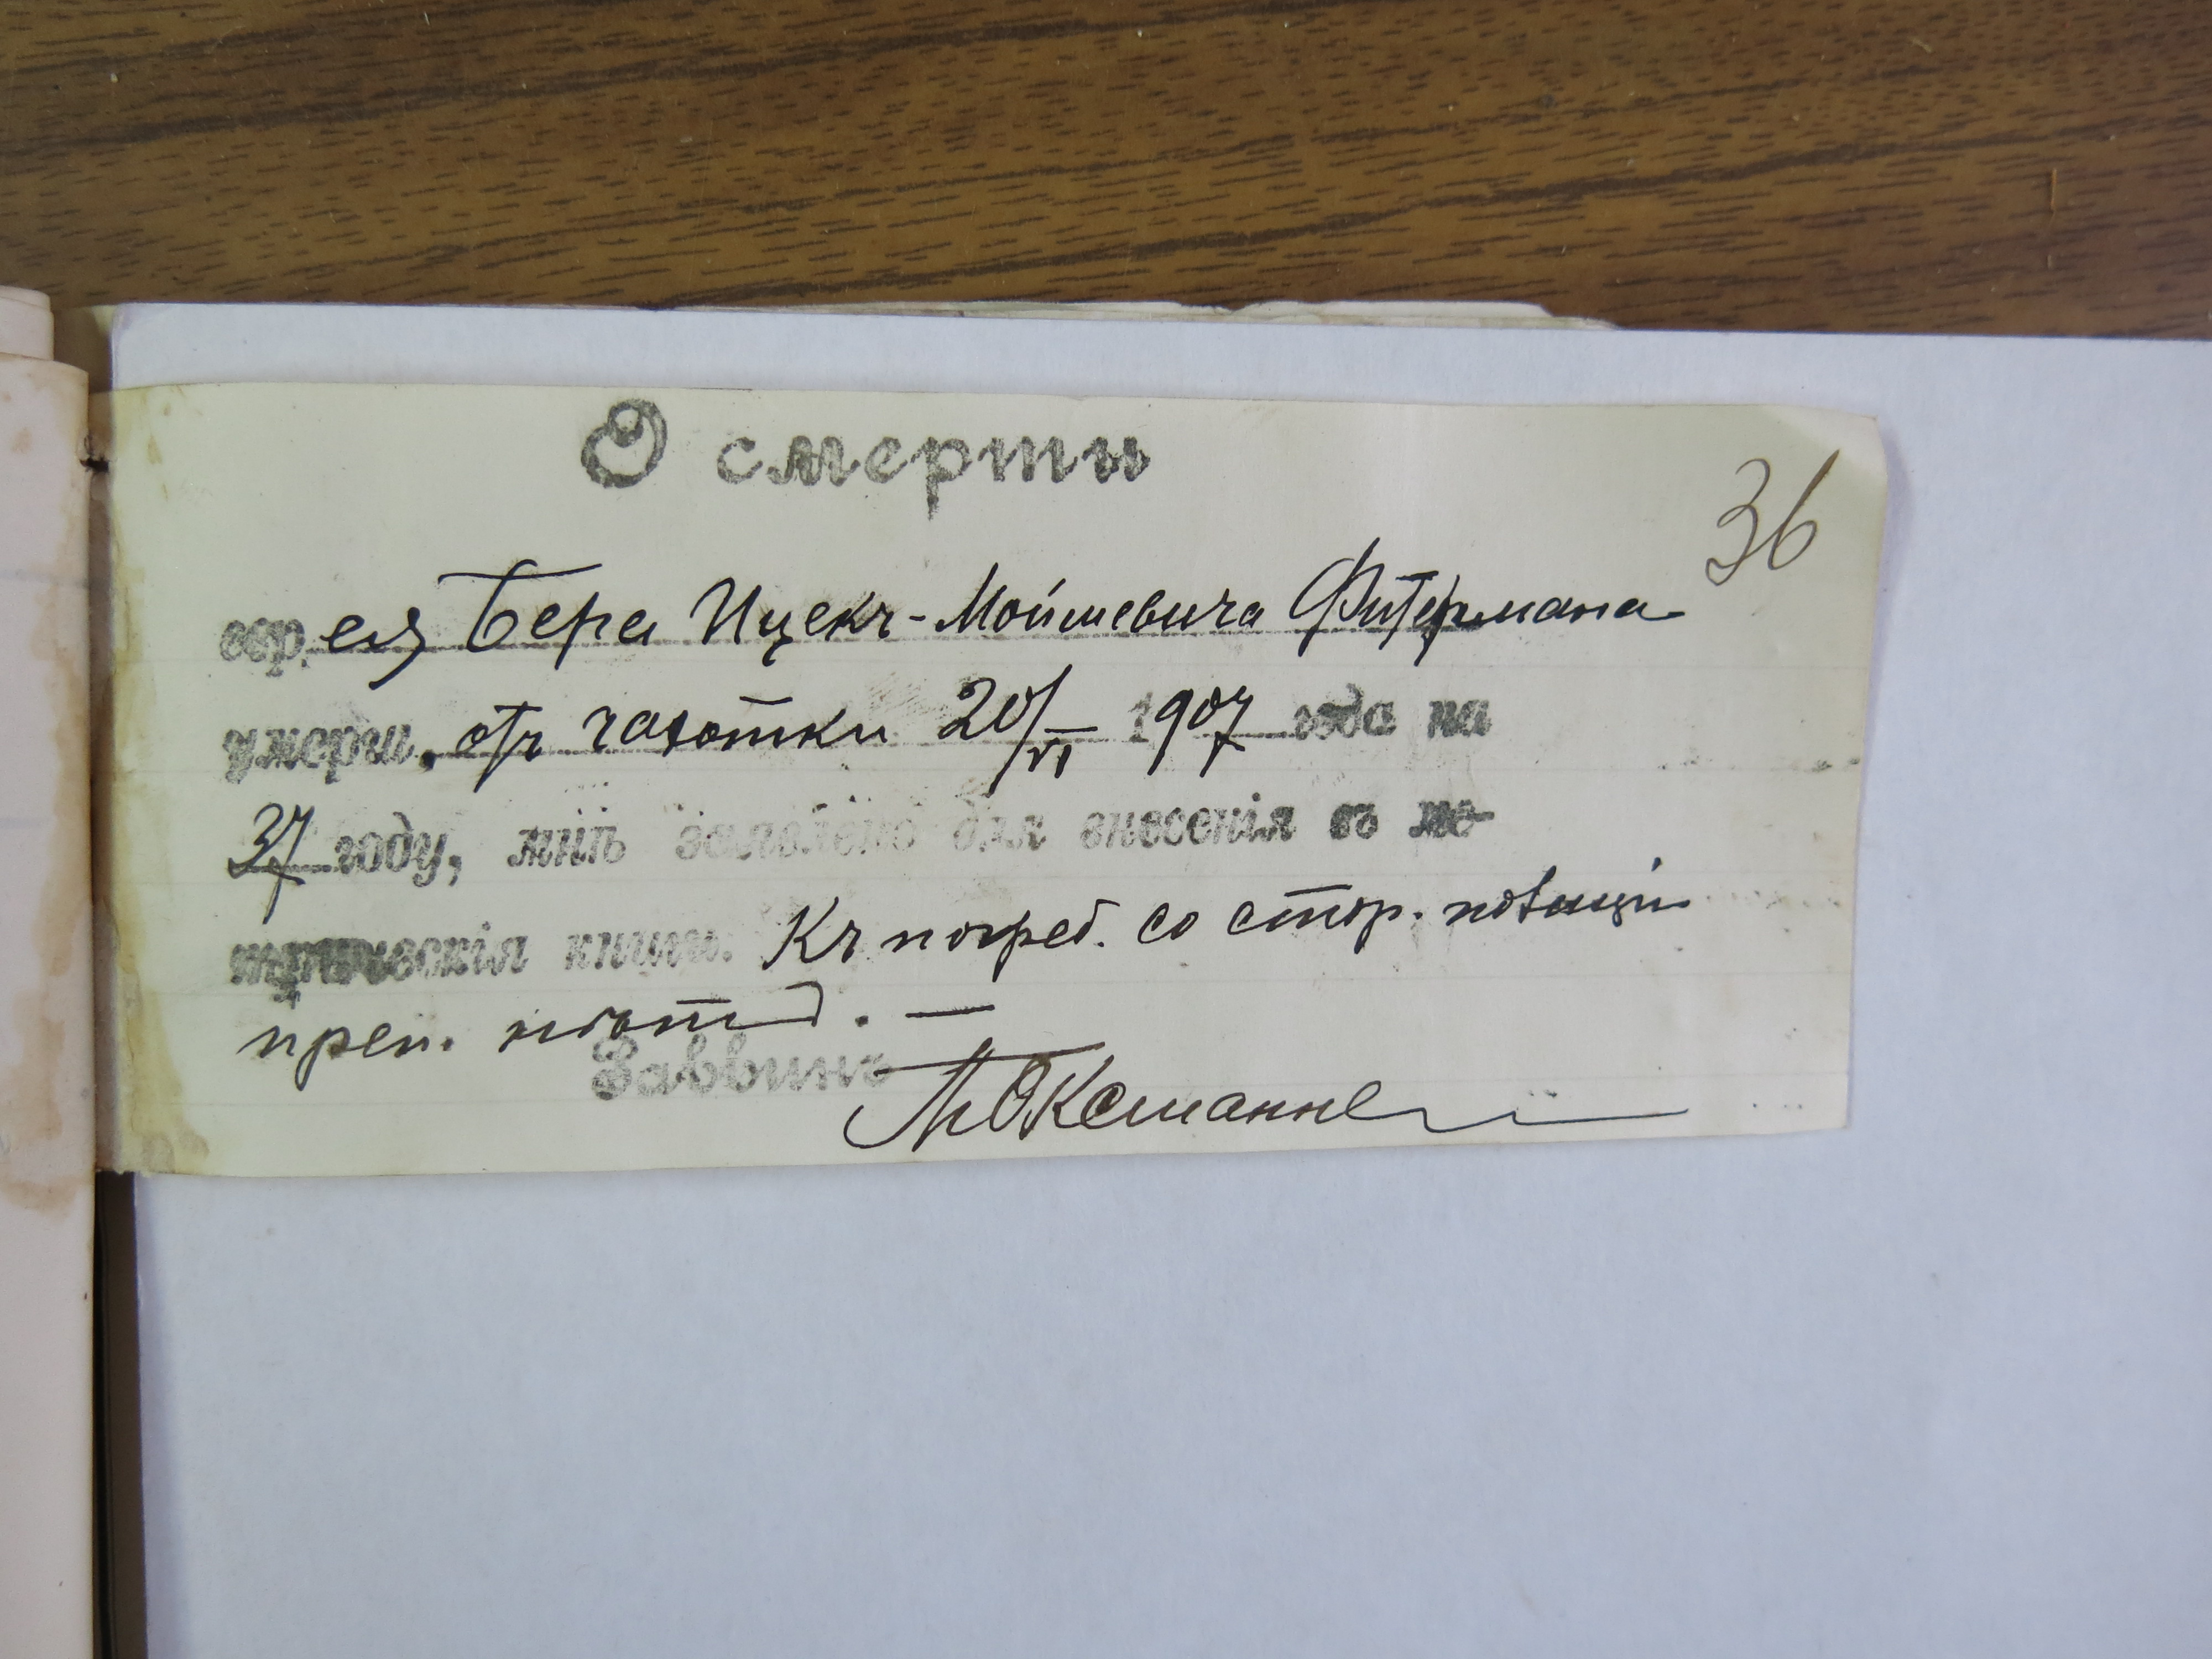 О смерти
36
евр. ея Бера Ицекъ-Мойшевича Фитермана
умерш. отъ чахотки 20/VI 1907 года на
37 году, мнѣ заявлено для внесенія въ ме-
трическія книги. Къ погреб. со стор. полиціи
преп. нѣтъ. —
Раввинъ